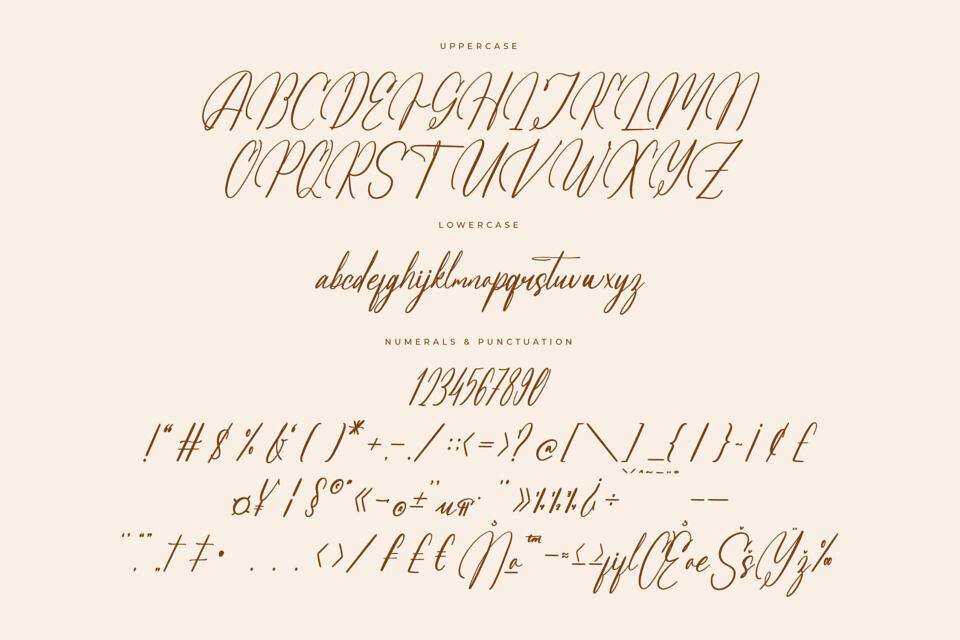 UPPERCASE
ABCDEFGHIJKLMN
OPQRSTUVWXYZ
LOWERCASE
abcdefghijklmnopqrstuvwxyz
NUMERALS & PUNCTUATION
1234567890
!"#$%&'()*+,-./:;<=>?@[\]_{|}~¡¢£
¤¥¦§©ª«¬®±
»¼½¾¿÷
‘’“”‚„†‡•...‹›⁄
™−≈≤≥ŒœŠšŸž‰